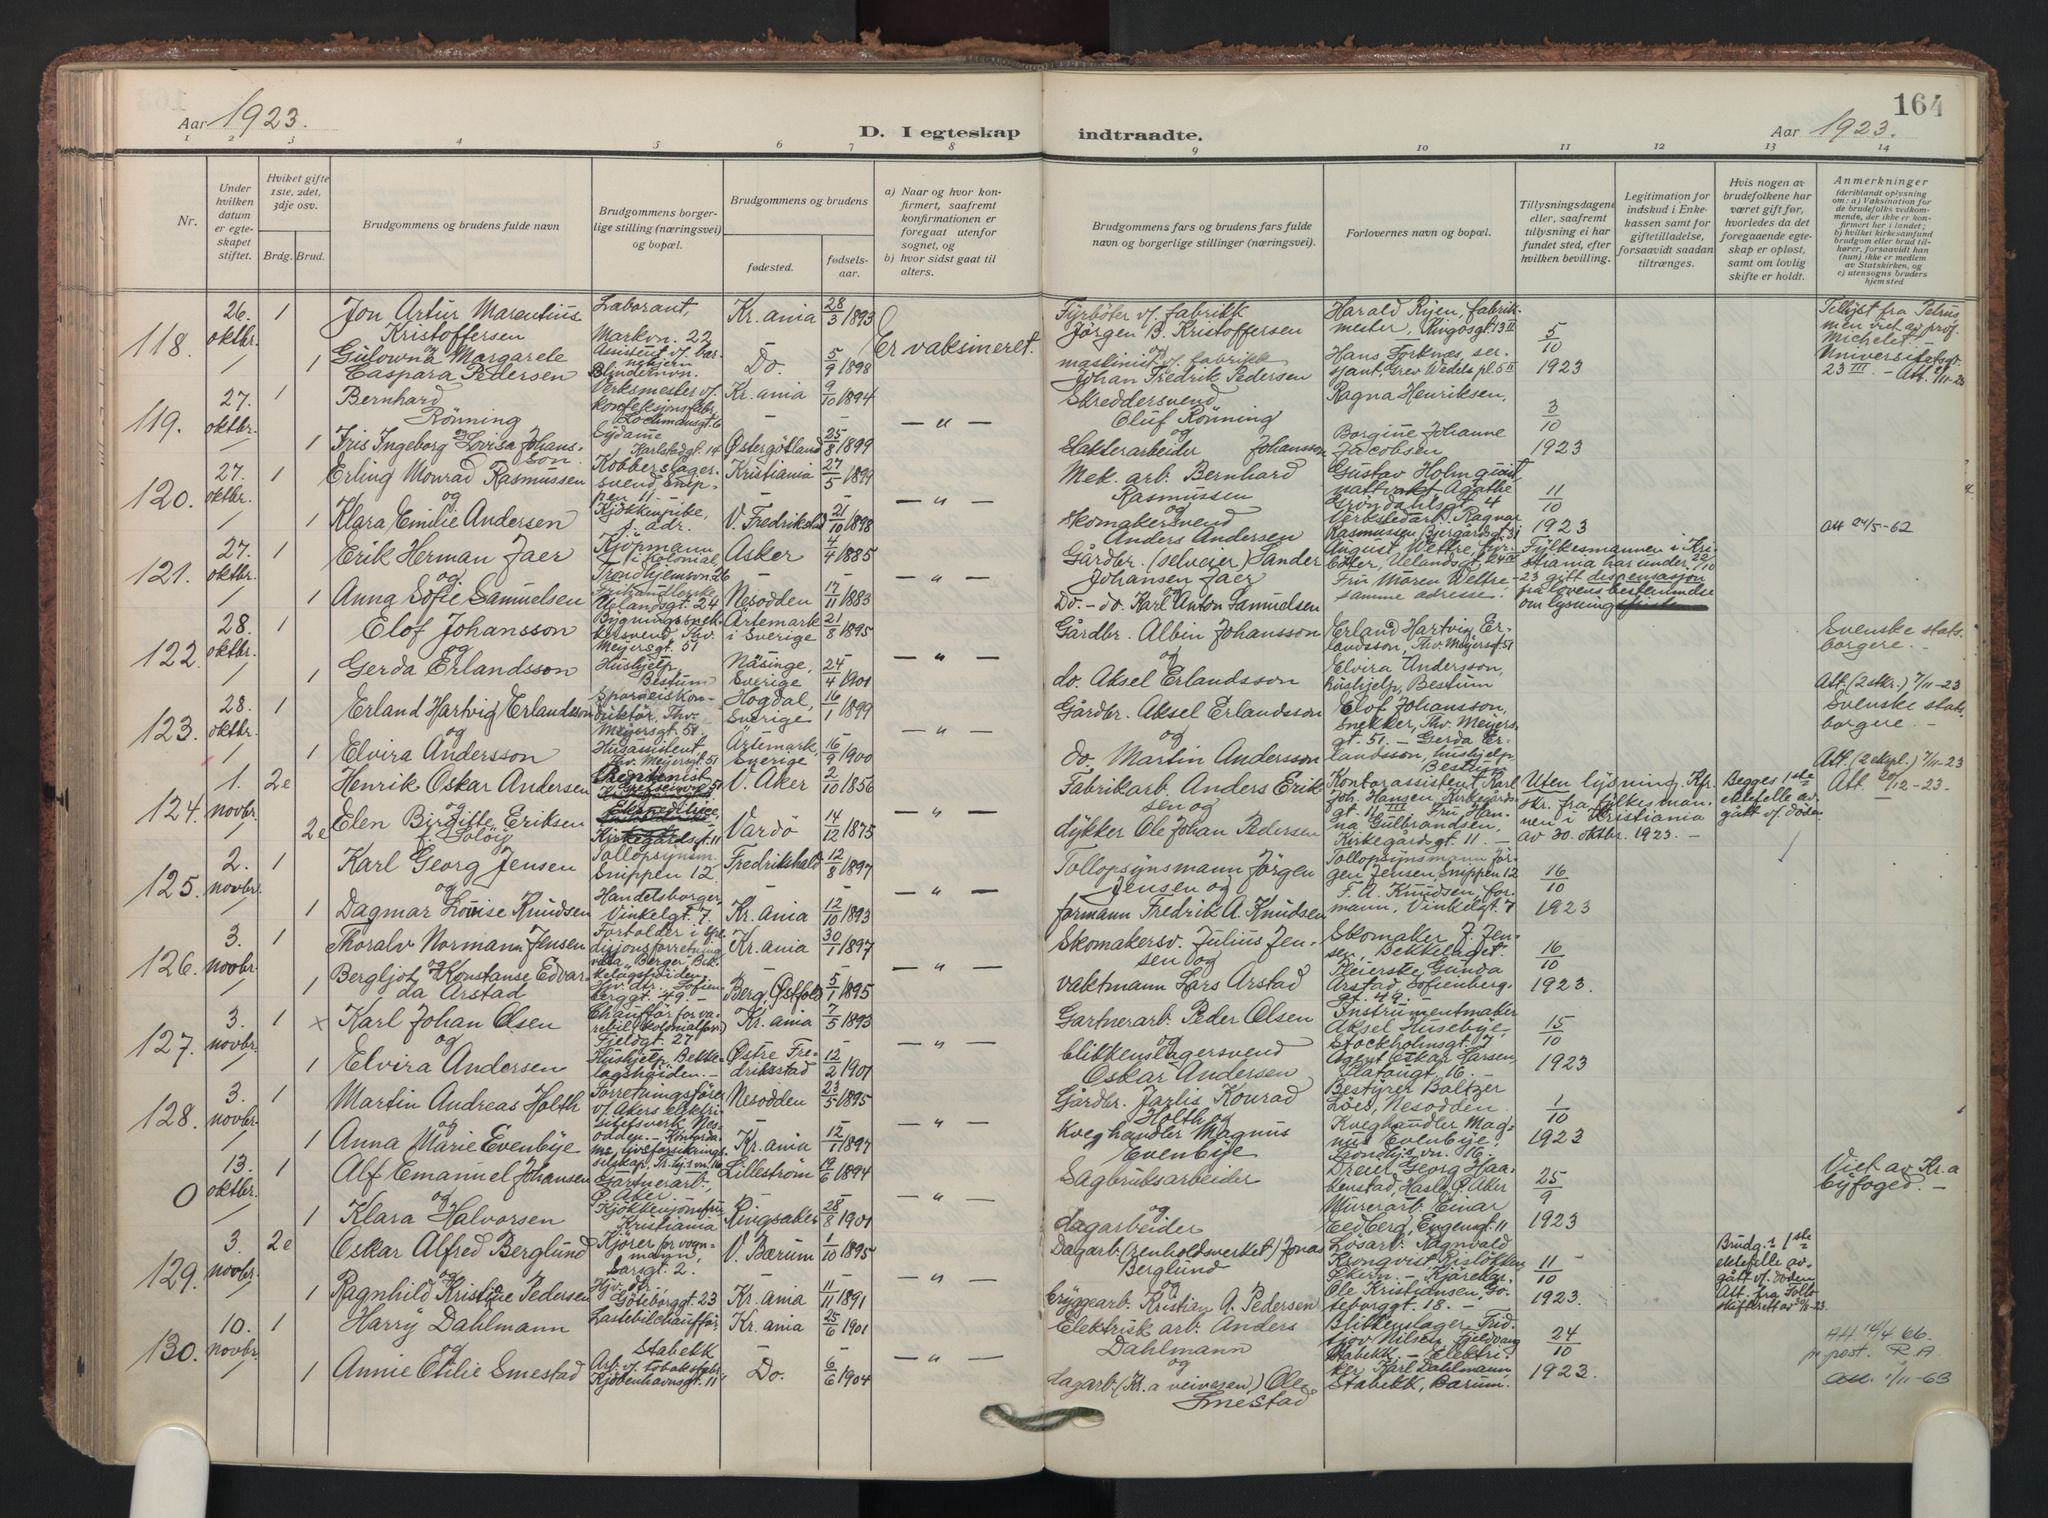 164
Aar 1923.
D. I egteskap indtraadte.
Aar 1923.
1 2 3 4 5 6 7 8 9 10 11 12 13 14
Nr.
Under hvilken datum er egteskapet stiftet.
Hviket gifte 1ste, 2det, 3dje osv.
Brdg. Brud.
Brudgommens og brudens fulde navn
Brudgommens borgerlige stilling (næringsvei) og bopæl.
Brudgommens og brudens
fødested.
fødselsaar.
a) Naar og hvor konfirmert, saafremt konfirmationen er foregaat utenfor sognet, og
b) hvor sidst gaat til alters.
Brudgommens fars og brudens fars fulde navn og borgerlige stillinger (næringsvei).
Forlovernes navn og bopæl.
Tillysningsdagene eller, saafremt tillysning ei har fundet sted, efter hvilken bevilling.
Legitimation for indskud i Enkekassen samt for giftetilladelse, forsaavidt saadan tiltrænges.
Hvis nogen av brudefolkene har været gift før, hvorledes da det foregaaende egteskap er opløst, samt om lovlig skifte er holdt.
Anmerkninger
(deriblandt oplysning om: a) Vaksination for de brudefolks vedkommende, der ikke er konfirmert her i landet;
b) hvilket kirkesamfund brudgom eller brud tilhører, forsaavidt han (hun) ikke er medlem av Statskirken, og
c) utensogns bruders hjemsted
118. 26. oktbr. 1 Jon Artur Marentius Kristoffersen Laborant, Markvn. 22 Kr.ania 28/3 1893 Er vaksineret. Fyrbøter v/ fabrikk Jørgen B. Kristoffersen Harald Ryen, fabrikmester, Kingosgt. 13 II 5/10 1923
og
1 Gulowna Margarete Caspara Pedersen Do. 5/9 1898 maskinist v/ fabrikk Johan Fredrik Pedersen
Att. 9/11-23
119. 27. oktbr. 1 Bernhard Rönning Verksmester v/ konfeksjonsfabr. Lochmansgt. 6 Kr.ania 9/10 1894 — " — Skreddersvend Oluf Rönning Ragna Henriksen, 3/10 1923
og
1 Iris Ingeborg Lovisa Johansson Sydame Karlstadgt. 14 Østergötland 25/8 1899 Johansson Borgine Johanne Jacobsen
120. 27. oktbr. 1 Erling Monrad Rasmussen Kobberslagersvend Snippen 11 Kristiania 27/5 1899 — " — Mek. arb. Bernhard Rasmussen Gustav Holmquist, nattvakt Agathe Gröndahlsgt. 4 11/10 1923
og
1 Klara Emilie Andersen Kjøkkenpike, s. adr. V. Fredrikstad 21/10 1898 Skomakersvend Anders Andersen Verkstedarb. Ragnar Rasmussen Att 24/5-62
121. 27. oktbr. 1 Erik Herman Jaer Kjöpmann i kolonial, Trondhjemsvn. 26 Asker 4/4 1885 — " — Gårdbr. (selveier) Sander Johansen Jaer August Wettre, Uelandsgt. 24 Fylkesmannen i Kristiania har under 22/10-23 gitt dispensasjon fra lovens bestemmelse om lysning
og
1 Anna Sofie Samuelsen Uelandsgt. 24 Nesodden 17/11 1883 Do. - do. Karl Anton Samuelsen Fru Maren Wettre samme adresse.
122. 28. oktbr. 1 Elof Johansson Bygningssnekkersvend, Thv. Meyersgt. 51 Ärtemark i Sverige 21/8 1895 — " — Gårdbr. Albin Johansson Erland Hartvig Erlandsson, Thv. Meyersgt. 51 Svenske statsborgere. —
og
1 Gerda Erlandsson Hushjelp Bestum Näsinge, Sverige 24/4 1901 do. Aksel Erlandsson Elvira Andersson, hushjelp, Bestum Att. (2 stkr.) 7/11-23
123. 28. oktbr. 1 Erland Hartvig Erlandsson Sporveiskonduktör, Thv. Meyersgt. 51. Hogdal, Sverige 16/1 1899 — " — Gårdbr. Aksel Erlandsson Elof Johansson, snekker, Thv. Meyersgt. 51. — Gerda Erlandsson, hushjelp Bestum Svenske statsborgere —
og
1 Elvira Andersson Husassistent, Thv. Meyersgt. 51 Ärtemark, Sverige 16/9 1900 do. Martin Andersson Att. (2 ekpl.) 7/11-23
124. 1. novbr. 2e Henrik Oskar Andersen V. Aker 2/10 1856 — " — Fabrikarb. Anders Eriksen og Kontorassistent Karl Joh. Hansen, Kirkegårdsgt. 11 III Uten lysning, Kfr. skr. fra fylkesmannen i Kristiania av 30. oktbr. 1923. — Begges 1ste ektefelle avgått v. döden Att. 20/12-23.
og
2e Elen Birgitte Eriksen f. Solöy Kirkegårdsgt. 11 Vardö 14/12 1875 dykker Ole Johan Pedersen Fru Hanna Gulbrandsen, Kirkegårdsgt. 11. —
125. 2. novbr. 1 Karl Georg Jensen Tollopsynsm. Snippen 12 Fredrikshald 12/8 1897 — " — Tollopsynsmann Jørgen Jensen og Tollopsynsmann Jørgen Jensen, Snippen 12 16/10 1923
og
1 Dagmar Lovise Knudsen Handelsborger, Vinkelgt. 7. Kr.ania 12/10 1893 formann Fredrik A. Knudsen F. A. Knudsen, formann, Vinkelgt. 7
126. 3. novbr. 1 Thoralv Normann Jensen Kr.ania 30/1 1897 — " — Skomakersv. Julius Jensen og Skomaker J. Jensen, Bekkelaget. 16/10 1923.
og
1 Bergljot Konstanse Edvarda Arstad Hjv. dtr. Sofienberggt. 49. — Berg, Østfold 5/1 1895 vaktmann Lars Arstad Pleierske Gunda Arstad, Sofienberggt. 49. —
127. 3. novbr. 1 × Karl Johan Olsen Chauffør for varebil (kolonialforr.) Fjeldgt. 27 Kr.ania 7/5 1893 — " — Gartnerarb. Peder Olsen Instrumentmaker Aksel Husebye, Stockholmsgt. 7 15/10 1923
og
1 Elvira Andersen Hushjelp Bekkelagshöiden. — Østre Fredrikstad 12/2 1901 blikkenslagersvend Oskar Andersen
128. 3. novbr. 1 Martin Andreas Holth Forretningsfører v/ Akers elektrisitetsverk Nesodden. — Nesodden 23/5 1895 — " — Gårdbr. Jarlis Konrad Holth og Bestyrer Baltzer Löes, Nesodden. 1/10 1923
og
1 Anna Marie Evenbye Kr.ania 12/1 1897 Kveghandler Magnus Evenbye Kveghandler Magnus Evenbye, Trondhjs.vn. 16.
0 13. oktbr. 1 Alf Emanuel Johansen Gartnerarb., Ø. Aker. — Lillestrøm 19/6 1894 — " — Sagbruksarbeider Dreier Georg Haakenstad, Hasle, Ø. Aker 25/9 1923 Viet av Kr.a byfoged. —
og
1 Klara Halvorsen Kjøkkenjomfru, Kristiania Ringsaker 28/8 1901 Lagarbeider Murerarb. Einar Hedberg, Engensgt. 11
129. 3. novbr. 2e Oskar Alfred Berglund Kjører for vognmann, Larsgt. 2. V. Bærum 1/10 1895 — " — Dagarb. (renholdsverket) Jonas Berglund Lösarb. Ragnvald 11/10 1923. Brudg.s 1ste ektefelle avgått v. döden
og
1 Ragnhild Kristine Pedersen Hjv. dtr. Göteborggt. 23 Kr.ania 11/11 1891 bryggearb. Kristian A. Pedersen Ole Kristiansen, Göteborggt. 18. —
130. 10. novbr. 1 Harry Dahlmann Lastebilchauffør, Stabekk Kr.ania 25/6 1901 — " — Elektrisk arb. Anders Dahlmann Blikkenslager Fridtjov Nilsen, Fjeldvang Stabekk. — Elektriker Karl Dahlmann Stabekk, Bærum. 24/10 1923. Att 14/4 66. post. R.A
og
1 Annie Otilie Smestad Arb. v/ tobaksfabr. Kjøbenhavnsgt. 11 Do. 6/6 1904 Lagarb. (Kr.a veivesen) Ole Smestad Att. 1/11-63